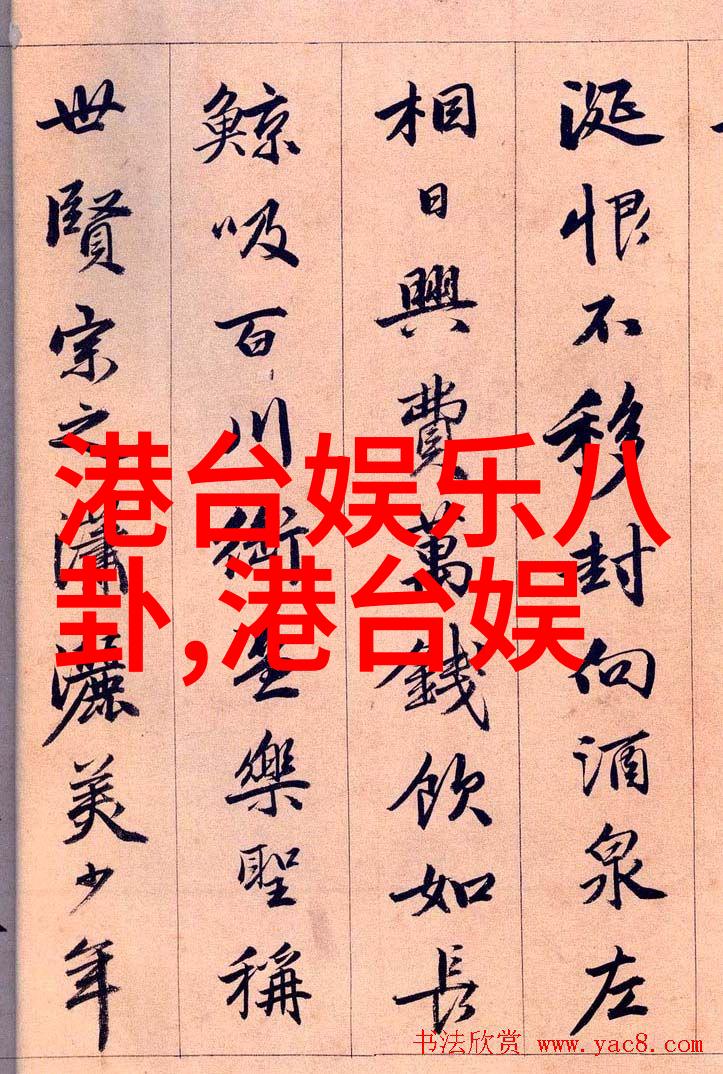 涎恨不移封向酒泉左
相日興費萬錢飲如長
鯨吸百川銜盃樂聖稱
世賢宗之瀟灑美少年
港台娱乐八
卦,港台娱
书法欣赏 www.yac8.com